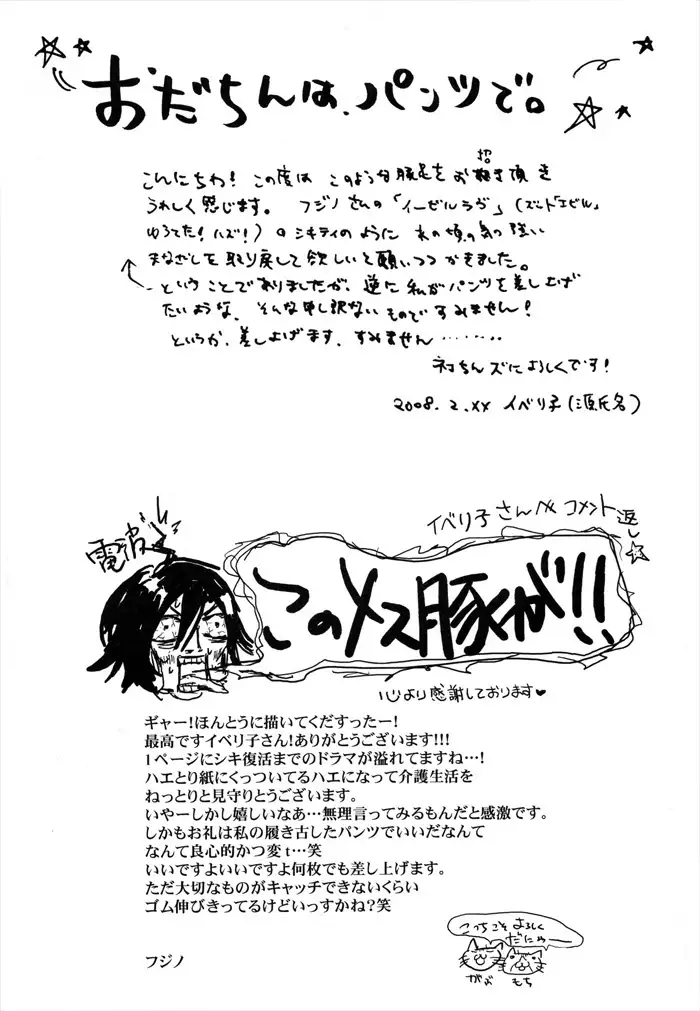 おだちんは、パンツで。
こんにちわ! この度は このような豚足をお招き頂き
うれしく感じます。 フジノさんの「イーゼルラヴ」(ズット「エゼル」
ゆうてた!ハズ!)の シキティのように あの頃の気の強い
まなざしを取り戻して欲しいと願いつつかきました。
←ということでありましたが、逆に私がパンツを差し上げ
たいような、そんな申し訳ないものですみません!
というか、差し上げます、すみません………
ネコちんズによろしくです!
2008.2.xx イベリ子(源氏名)
イベリ子さんへ コメント返し☆
電波
このメス豚が!!
心より感謝しております♥
ギャー!ほんとうに描いてくだすったー!
最高ですイベリ子さん!ありがとうございます!!!
1ページにシキ復活までのドラマが溢れてますね…!
ハエとり紙にくっついてるハエになって介護生活を
ねっとりと見守りとうございます。
いやーしかし嬉しいなあ…無理言ってみるもんだと感激です。
しかもお礼は私の履き古したパンツでいいだなんて
なんて良心的かつ変t…笑
いいですよいいですよ何枚でも差し上げます。
ただ大切なものがキャッチできないくらい
ゴム伸びきってるけどいっすかね?笑
フジノ
こっちこそ よろしく
だにゃー
がぶ もち